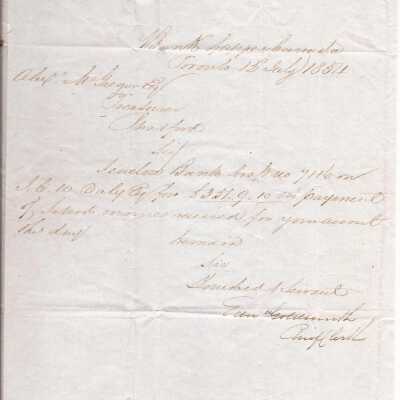 Bank Upper Canada
Toronto 18 July 1854
Alexr McGregor Esq
Treasurer
Stratford
Sir
I enclose Bank Draft No 7116 on
J. C. W Daly Esq for £351.9.10 in payment
of School monies received for your account
this day
I remain
Sir
Your obed Servant
Goldsmith
Chief Clerk